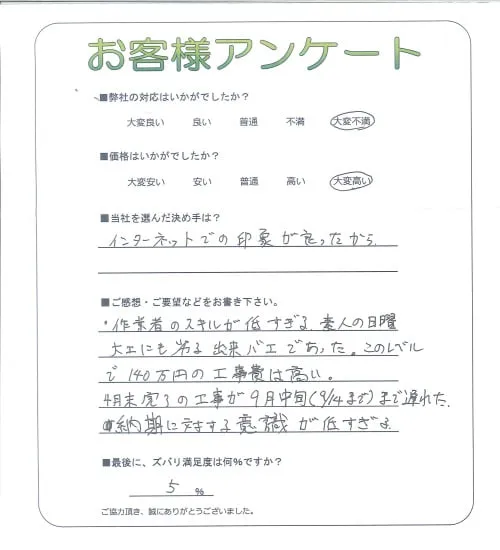 お客様アンケート
■弊社の対応はいかがでしたか？
大変良い 良い 普通 不満 大変不満
■価格はいかがでしたか？
大変安い 安い 普通 高い 大変高い
■当社を選んだ決め手は？
インターネットでの印象が良ったから
■ご感想・ご要望などをお書き下さい。
・作業者のスキルが低すぎる、素人の日曜
大工にも劣る出来バエであった。このレベル
で140万円の工事費は高い。
4月末完了の工事が9月中旬(9/14まで)まで遅れた。
納期に対する意識が低すぎる
■最後に、ズバリ満足度は何%ですか？
5 %
ご協力頂き、誠にありがとうございました。